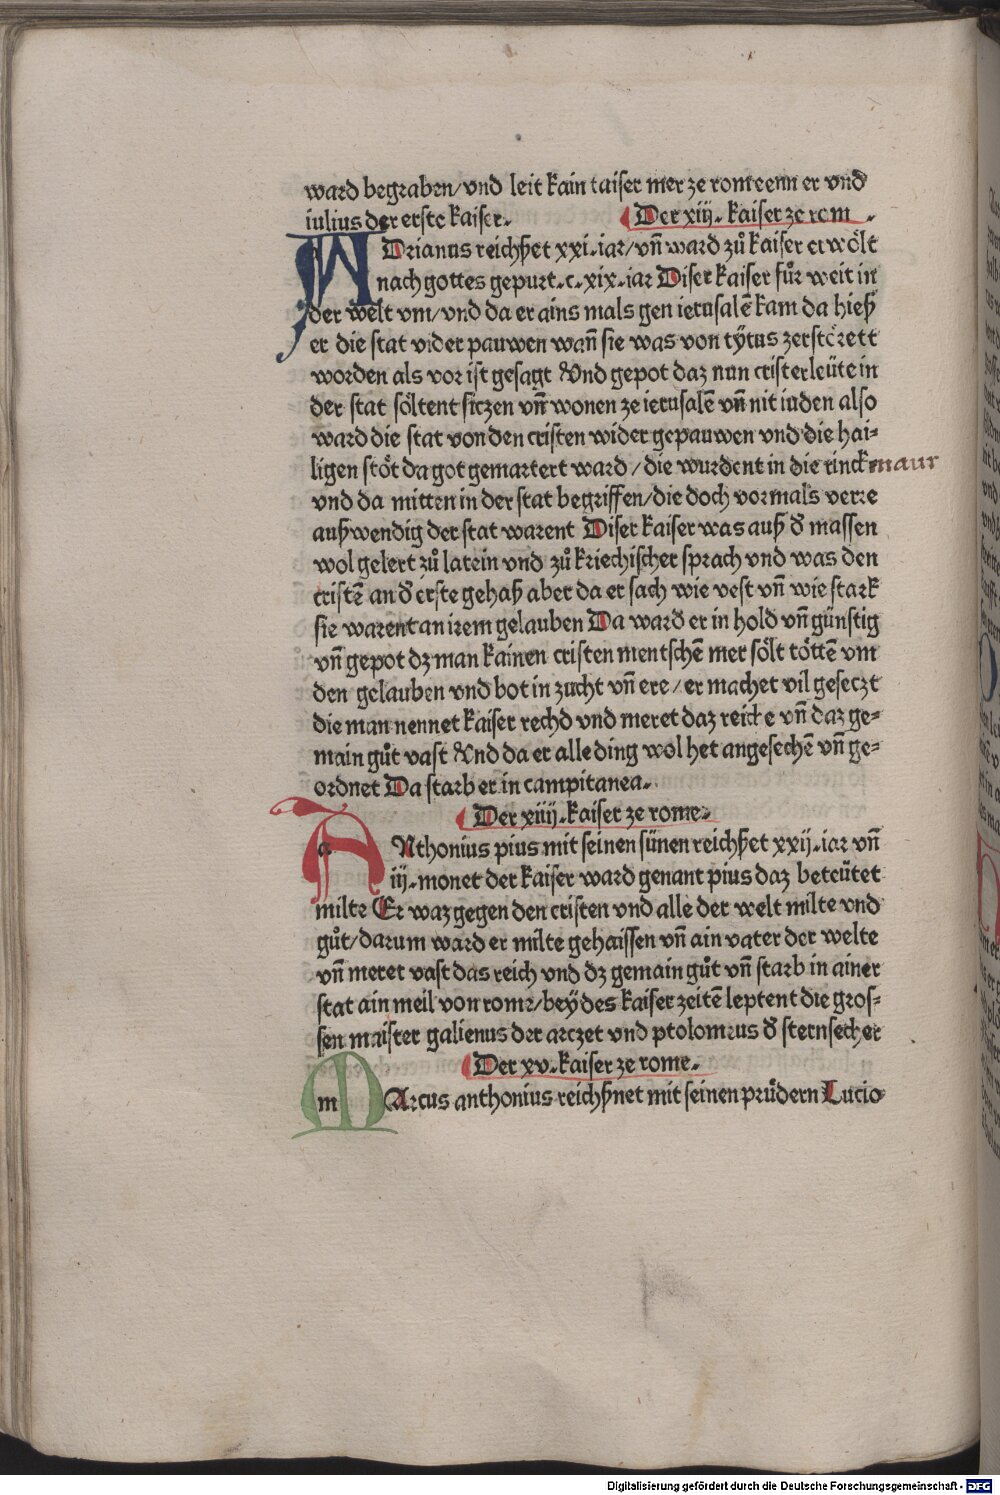 ward begraben/vnd leit kain kaiser mer ze rom denn er vnd
iulius der erste kaiser. Der xiij. kaiser ze rom.
ADrianus reichßet xxi.iar/vñ ward zů kaiser erwölt
nach gottes gepurt.c.xix.iar Diser kaiser fůr weit in
der welt vm/vnd da er ains mals gen ierusalē kam da hieß
er die stat wider pauwen wañ sie was von tÿtus zerstörett
worden als vor ist gesagt Vnd gepot daz nun cristerleüte in
der stat söltent siczen vñ wonen ze ierusalē vñ nit iuden also
ward die stat von den cristen wider gepauwen vnd die hai⸗
ligen stöt da got gemartert ward/die wurdent in die rinckmaur
vnd da mitten in der stat begriffen/die doch vormals verre
außwendig der stat warent Diser kaiser was auß d̕ massen
wol gelert zů latein vnd zů kriechischer sprach vnd was den
cristē an d̕ erste gehaß aber da er sach wie vest vñ wie stark
sie warent an irem gelauben Da ward er in hold vñ günstig
vñ gepot dz man kainen cristen mentschē mer sölt töttē vm
den gelauben vnd bot in zucht vñ ere/er machet vil geseczt
die man nennet kaiser rechd vnd meret daz reiche vñ daz ge⸗
main gůt vast Vnd da er alle ding wol het angesechē vñ ge⸗
ordnet Da starb er in campitanea.
Der xiiij.kaiser ze rome.
aNthonius pius mit seinen sünen reichßet xxij.iar vñ
iij.monet der kaiser ward genant pius daz beteütet
milte Er waz gegen den cristen vnd alle der welt milte vnd
gůt/darum ward er milte gehaissen vñ ain vater der welte
vñ meret vast das reich vnd dz gemain gůt vñ starb in ainer
stat ain meil von rome/beÿ des kaiser zeitē leptent die gros⸗
sen maister galienus der arczet vnd ptolomeus d̕ sternsecher
Der xv.kaiser ze rome.
mArcus anthonius reichßnet mit seinen prüdern Lucio
Digitalisierung gefördert durch die Deutsche Forschungsgemeinschaft - DFG